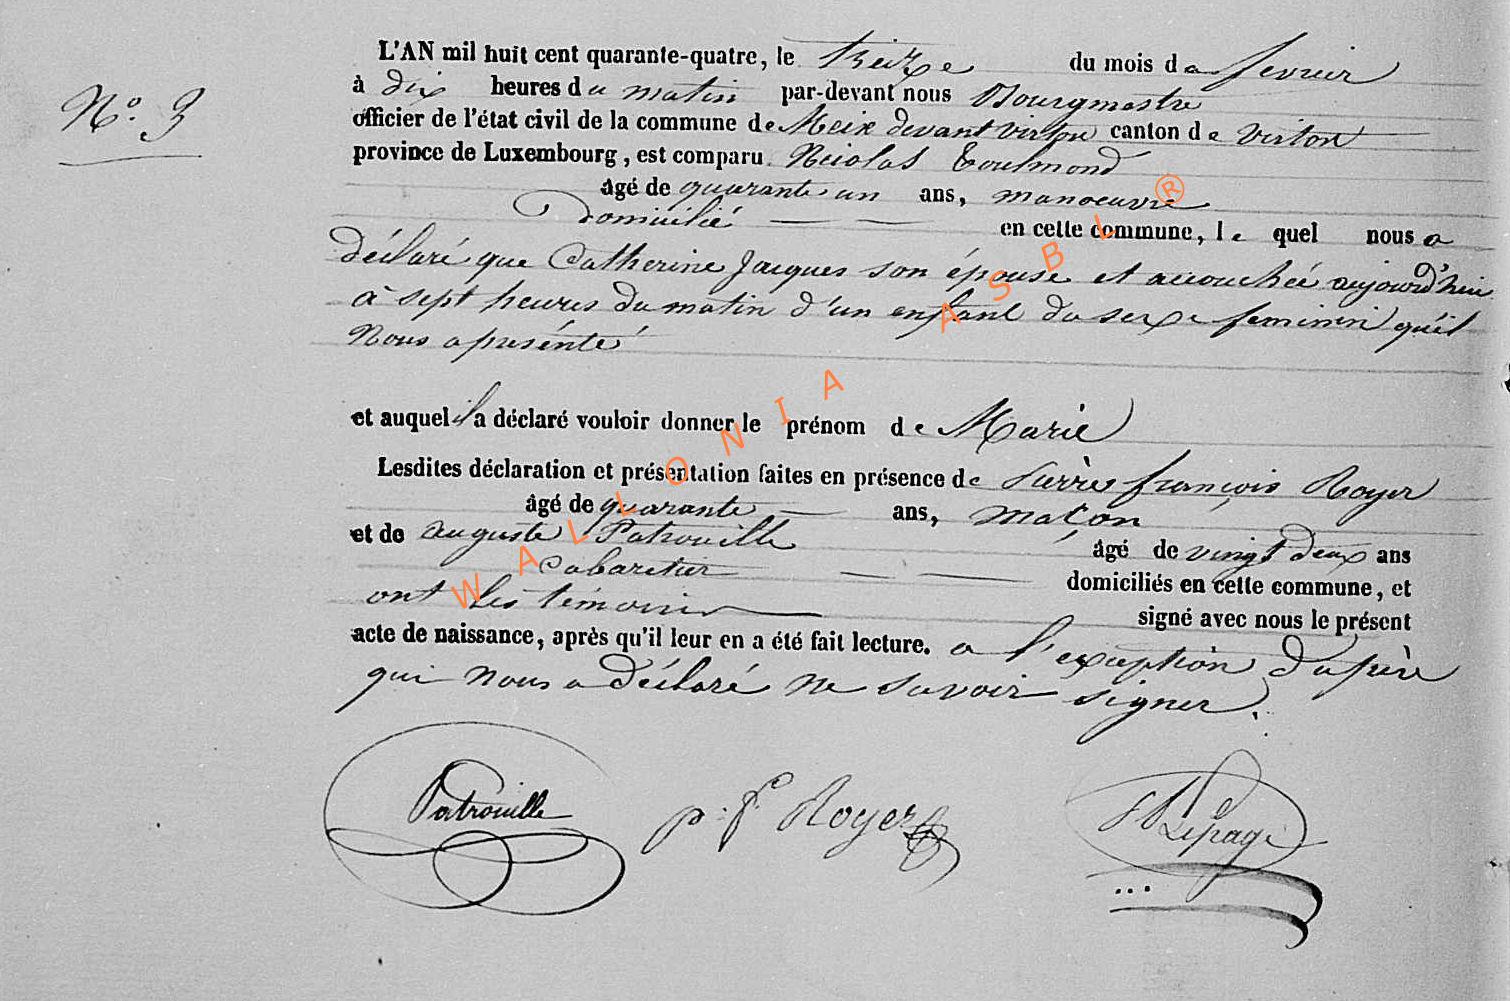 N.º 9
L'AN mil huit cent quarante-quatre, le treize du mois de fevrier
à dix heures du matin par-devant nous Bourgmestre
officier de l'état civil de la commune de Meix devant virton canton de virton
province de Luxembourg, est comparu Nicolas Toulmond
âgé de quarante un ans, manoeuvre
Domicilié en cette commune, le quel nous a
déclaré que Catherine Jacques son épouse et accouchée aujourd'hui
à sept heures du matin d'un enfant du sexe feminin qu'il
Nous a présenté
et auquel il a déclaré vouloir donner le prénom de Marie
Lesdites déclaration et présentation faites en présence de Pierre françois Royer
âgé de quarante ans, maçon
et de auguste Patrouille âgé de vingt deux ans
Cabaretier domiciliés en cette commune, et
ont les témoins signé avec nous le présent
acte de naissance, après qu'il leur en a été fait lecture. a l'exception du père
qui nous a déclaré ne savoir signer.
Patrouille p: fᶜ Royer Lepage
WALLONIA ASBL ®